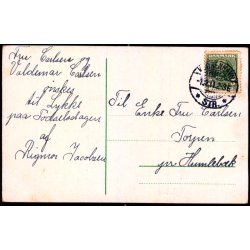 Fru Carlsens og
Valdemar Carlsen
ønskes
til Lykke
paa Fødselsdagen
af
Rigmor Jacobsen
Til
Enke Fru Carlsen
Torpen
pr Humlebæk
STR.